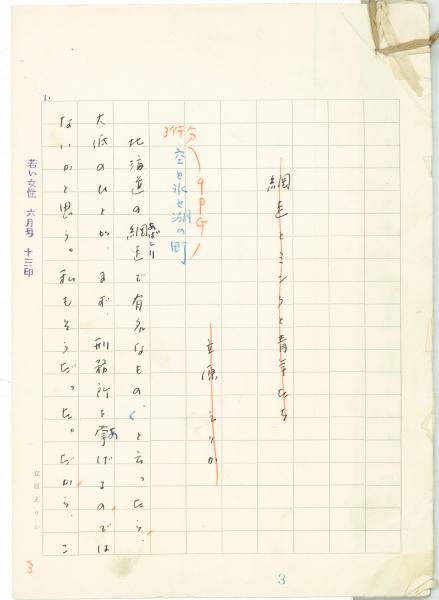 網走とミンクと青年たち
立原えりか
3行分
9PG
空と氷と湖の町
北海道の網走で有名なもの、と云ったら、
あばしり
大低のひとが、まず、刑務所を挙げるのでは
あ
ないかと思う。私もそうだった。だから、こ
若い女性 六月号 十三印
立原えりか
3
3